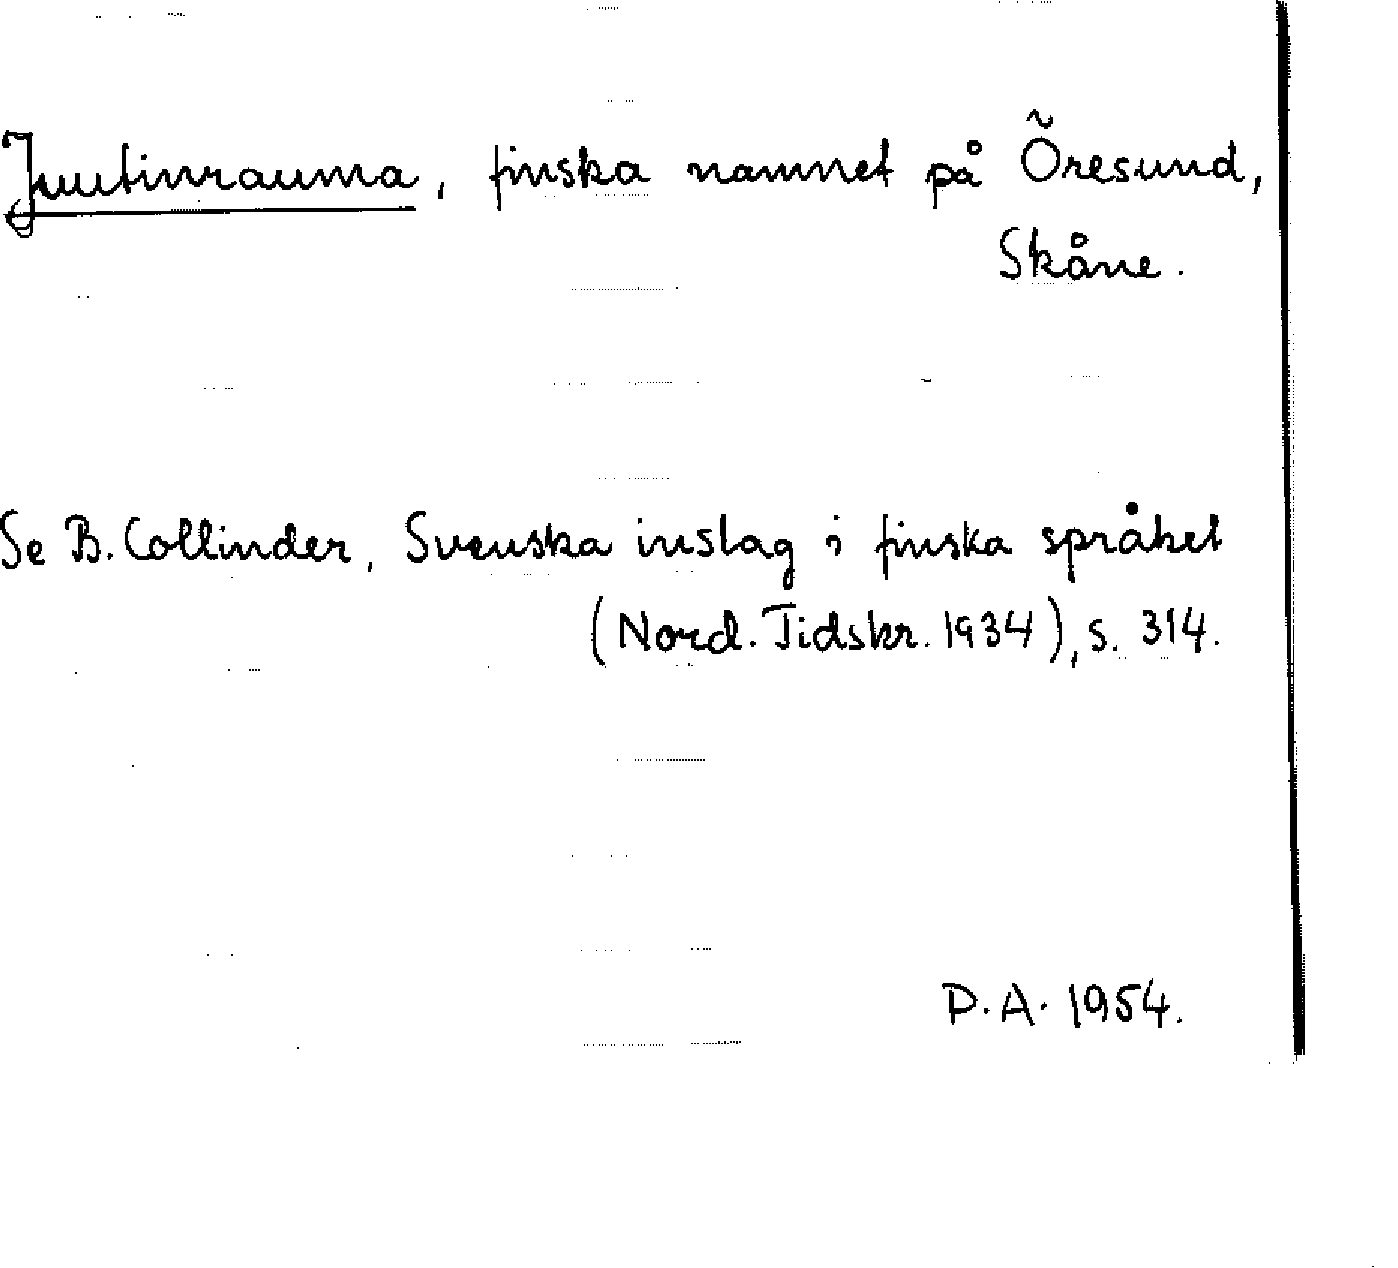 Juutinrauma, finska namnet på Öresund,
Skåne.
Se B. Collinder, Svenska inslag i finska språket
(Nord. Tidskr. 1934), s. 314.
P.A. 1954.